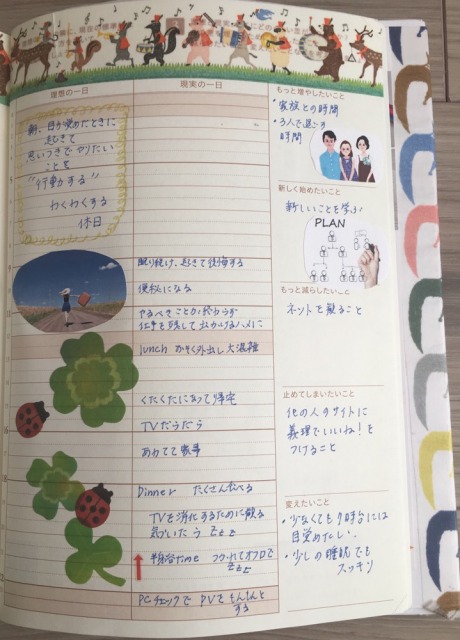 理想の一日
現実の一日
朝、目が覚めたときに
起きて
思いつきでやりたい
ことを
"行動する"
わくわくする
休日
眠り続け、起きて後悔する
便秘になる
やるべきことが終わらず
仕事を残して出かけるハメに
lunch かぞく外出し大混雑
くたくたになって帰宅
TVだらだら
あわてて家事
Dinner たくさん食べる
TVを消化するために観る
気づいたらZzz
半身浴time つかれてオフロで
Zzz
PCチェックで PVをもんもんと
する
もっと増やしたいこと
・家族との時間
・3人で過ごす
時間
新しく始めたいこと
新しいことを学ぶ
PLAN
もっと減らしたいこと
ネットを観ること
止めてしまいたいこと
他の人のサイトに
義理でいいね!を
つけること
変えたいこと
・少なくても9時台には
目覚めたい。
・少しの睡眠でも
スッキリ